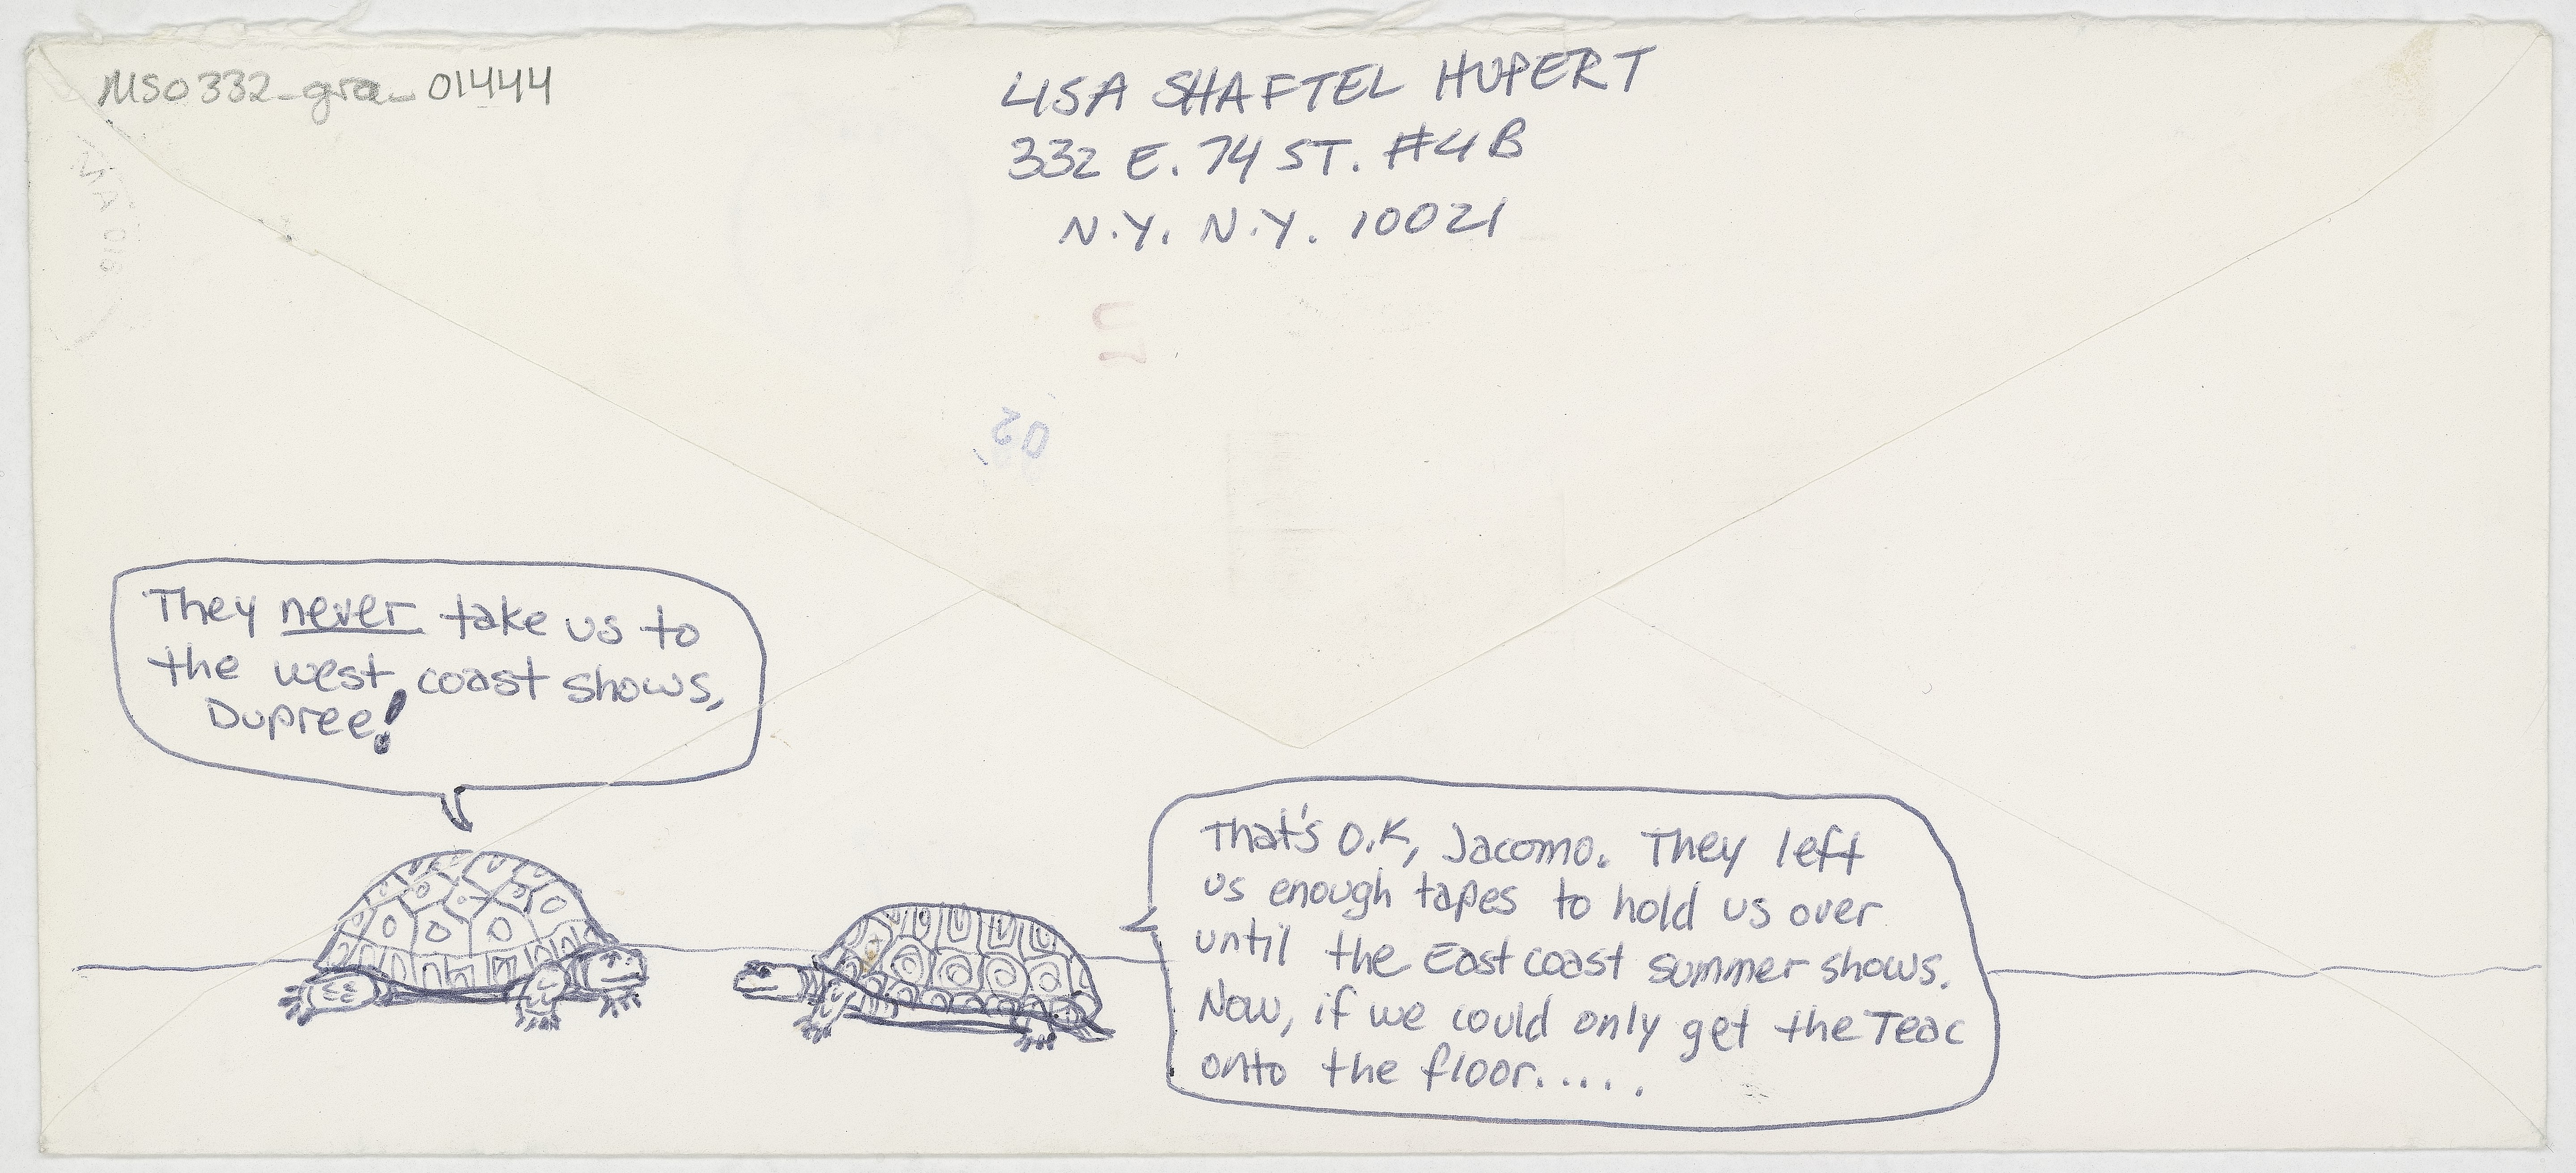 MS0332_gra_01444
LISA SHAFTEL HUPERT
332 E. 74 ST. #4B
N.Y. N.Y. 10021
02
They never take us to
the west coast shows,
Dupree!
That's O.K, Jacomo. They left
us enough tapes to hold us over
until the East coast summer shows.
Now, if we could only get the Teac
onto the floor.....